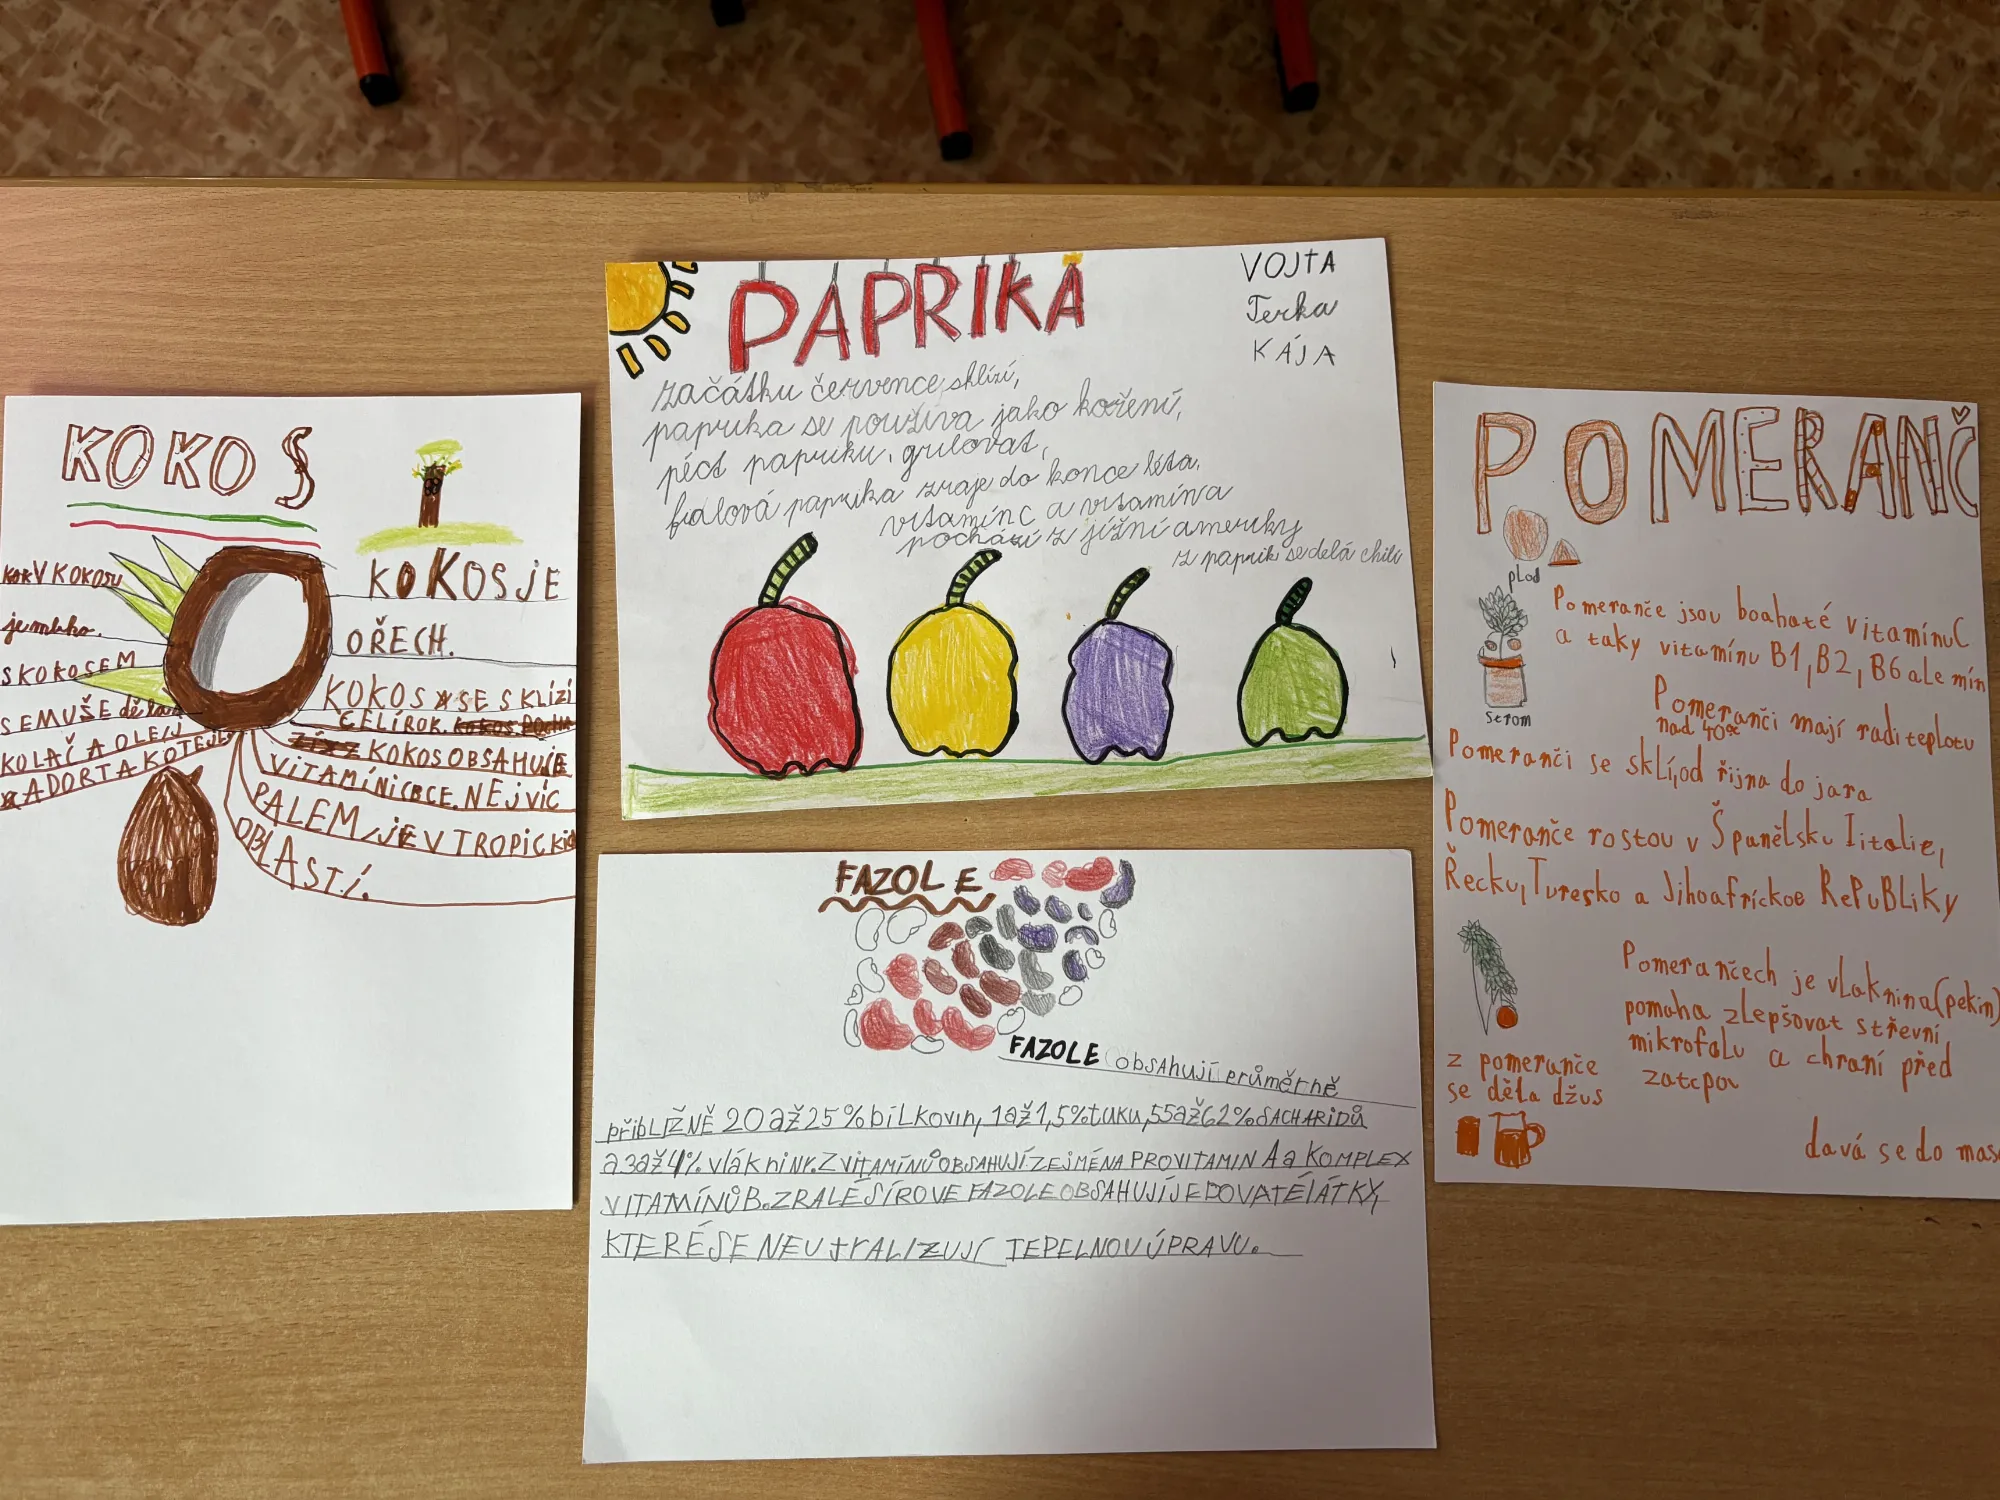 KOKOS
KOKV KOKOSU
je mléko.
S KOKOSEM
SE MUŠE děla
KOLAČ A OLEJ
A DORTA KOTEJE
KOKOS JE
OŘECH.
KOKOS SE SKLÍZÍ
CELÍ ROK. KOKOS POCHA
ZÍ Z KOKOS OBSAHUJE
VITAMÍNI C B C E. NEJVÍC
PALEM JE V TROPICKÍ
OBLASTÍ.
PAPRIKA
VOJTA
Terka
KÁJA
začátku července sklízí,
paprika se používa jako koření,
péct papriku, grilovat,
fialová paprika zraje do konce léta,
vitamín c a vitamín a
pochází z jížní ameriky
z paprik se delá chili
FAZOLE
FAZOLE obsahují průměrně
přibLIŽNĚ 20 až 25 % bílkovin, 1 až 1,5% tuku, 55 až 62% SACHARIDŮ
a 3 až 4% vlákniny. Z VITAMÍNŮ OBSAHUJÍ ZEJMÉNA PROVITAMIN A a KOMPLEX
VITAMÍNŮ B. ZRALÉ SÍROVE FAZOLE OBSAHUJÍ JEDOVATÉ LÁTKY,
KTERÉ SE NEUtRALIZUJÍ TEPELNOU ÚPRAVU.
POMERANČ
plod
Pomeranče jsou boahaté vitamínu C
a taky vitamínu B1, B2, B6 ale mín
strom
Pomeranči mají radi teplotu
nad 40°
Pomeranči se sklí, od řijna do jara
Pomeranče rostou v Španělsku Iitalie,
Řecku, Turesko a Jihoafríckoe RePuBLiKy
Pomerančech je vlaknina (pekin)
pomaha zlepšovat střevní
mikrofalu a chraní před
zatcpou
z pomeranče
se děla džus
davá se do mas